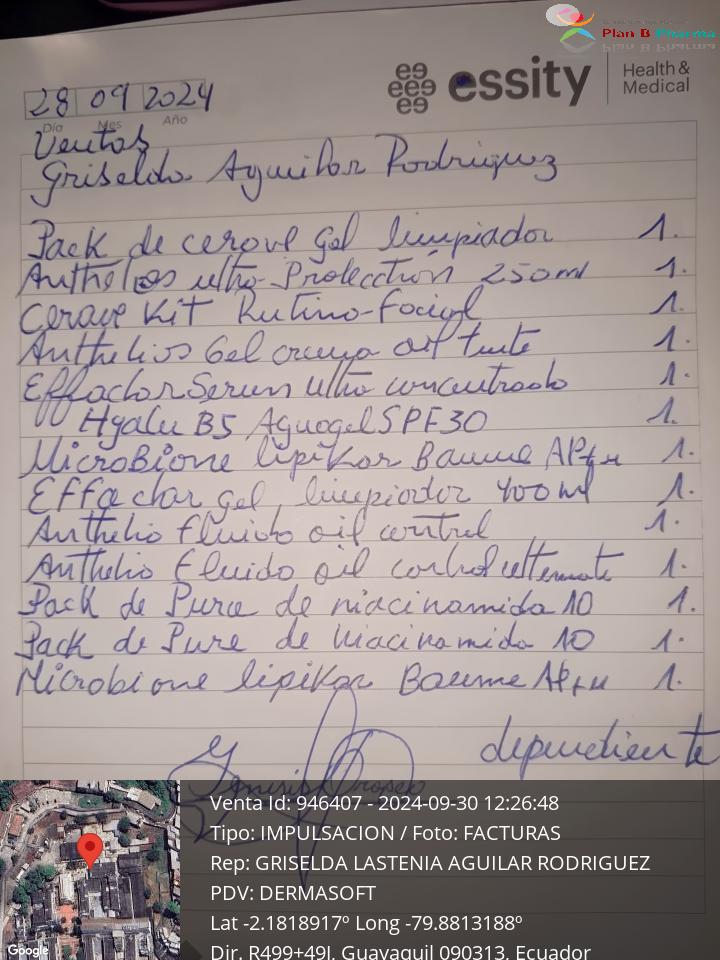 Plan B Pharma
essity
Health &
Medical
28 09 2024
Día Mes Año
Ventas
Griselda Aguilar Rodriguez
Pack de cerave Gel limpiador 1.
Anthelios ultra-Protección 250ml 1.
Cerave Kit Rutina-Facial 1.
Anthelios Gel crema oil tinte 1.
Effaclar Serum Ultra concentrado 1.
Hyalu B5 Aquagel SPF30 1.
MicroBione lipiKar Baume AP+M 1.
Effaclar gel limpiador 400ml 1.
Anthelio fluido oil control 1.
Anthelio fluido oil control 1.
Pack de Pure de niacinamida 10 1.
Pack de Pure de niacinamida 10 1.
Microbione lipiKar Baume AP+M 1.
dependiente
Venta Id: 946407 - 2024-09-30 12:26:48
Tipo: IMPULSACION / Foto: FACTURAS
Rep: GRISELDA LASTENIA AGUILAR RODRIGUEZ
PDV: DERMASOFT
Lat -2.1818917º Long -79.8813188º
Dir. R499+49J, Guayaquil 090313, Ecuador
Google